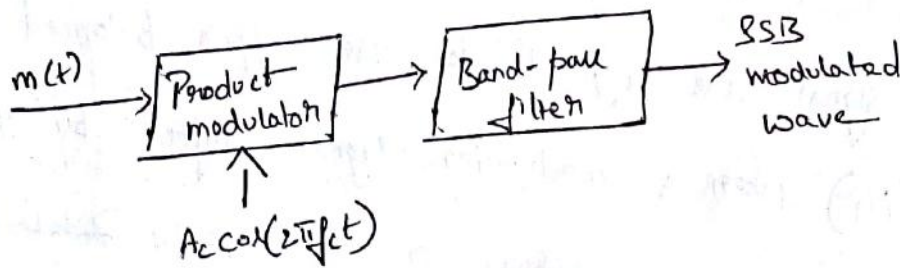 m(t)
Product
modulator
Band-pass
filter
SSB
modulated
wave
Ac cos(2πfct)